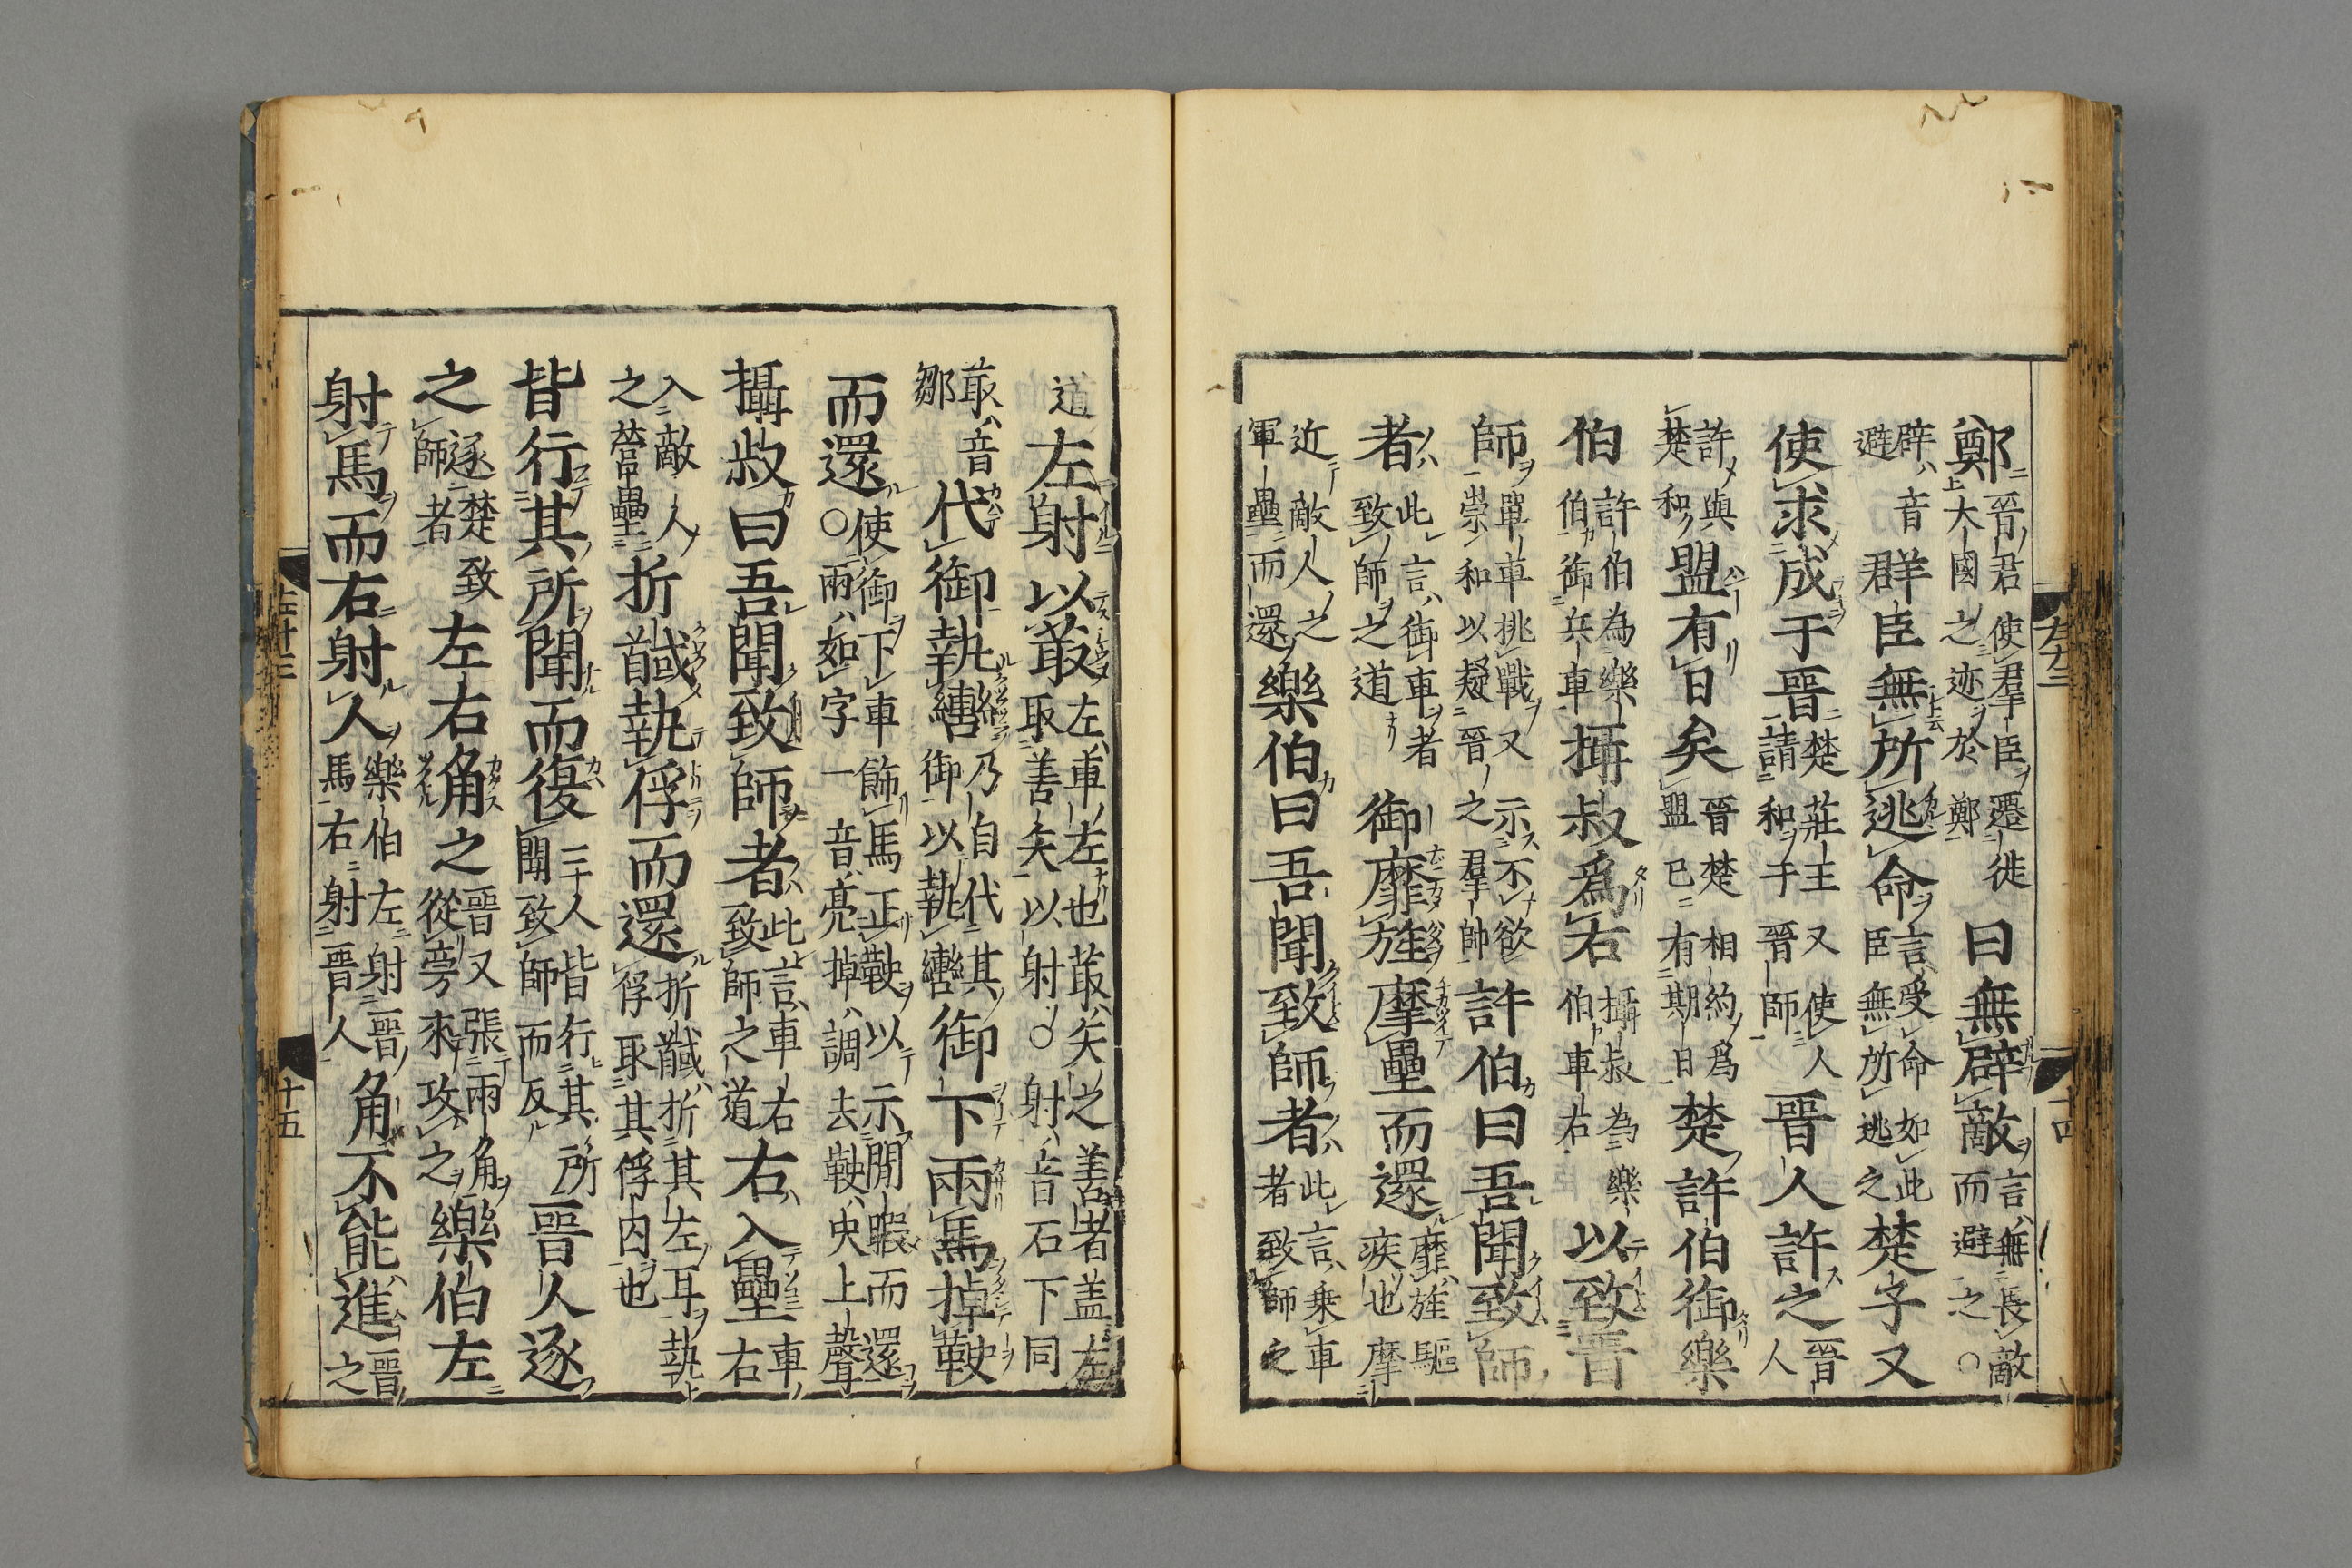 鄭晋君使羣臣遷徙大國之迹於鄭曰無辟敵言無長敵而避之○
辟音避群臣無所逃命言受命如此臣無所逃之楚子又
使求成于晉楚莊王又使人請和于晉師晉人許之晉人
許與楚和盟有日矣晉楚相約爲盟已有期日楚許伯御樂
伯許伯為樂伯御兵車攝叔爲右攝叔為樂伯車右以致晉
師單車挑戰又示不欲崇和以疑晉之羣帥許伯曰吾聞致師
者此言御車者致師之道御靡旌摩壘而還靡旌驅疾也摩
近敵人之軍壘而還樂伯曰吾聞致師者此言乗車者致師之
道左射以菆左車左也菆矢之善者盖左取善矢以射○射音石下同
菆音鄒代御執轡乃自代其御以執轡御下兩馬掉鞅
而還使御下車飾馬正鞅以示閒暇而還○兩如字一音亮掉調去鞅央上聲
攝叔曰吾聞致師者此言車右致師之道右入壘車右
入敵人之營壘折馘執俘而還折馘折其左耳執俘取其俘囚也
皆行其所聞而復三人皆行其所聞致師而反晉人逐
之逐楚致師者左右角之晉又張兩角從旁來攻之樂伯左
射馬而右射人樂伯左射晉馬右射晉人角不能進晉之
十五